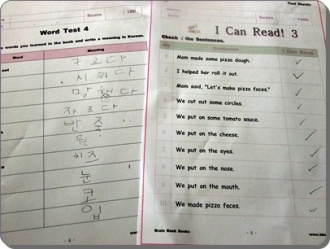 Score
100
Word Test 4
words you learned in the book and write a meaning in Korean.
Word
Meaning
구르다
자르다
반죽
원
치즈
눈
코
입
Test Sheets
Score
I Can Read! 3
Check √ the Sentences.
No
I Can Read
1 Mom made some pizza dough.
2 I helped her roll it out.
3 Mom said, "Let's make pizza faces."
4 We cut out some circles.
5 We put on some tomato sauce.
6 We put on the cheese.
7 We put on the eyes.
8 We put on the nose.
9 We put on the mouth.
10 We made pizza faces.
Brain Bank Books